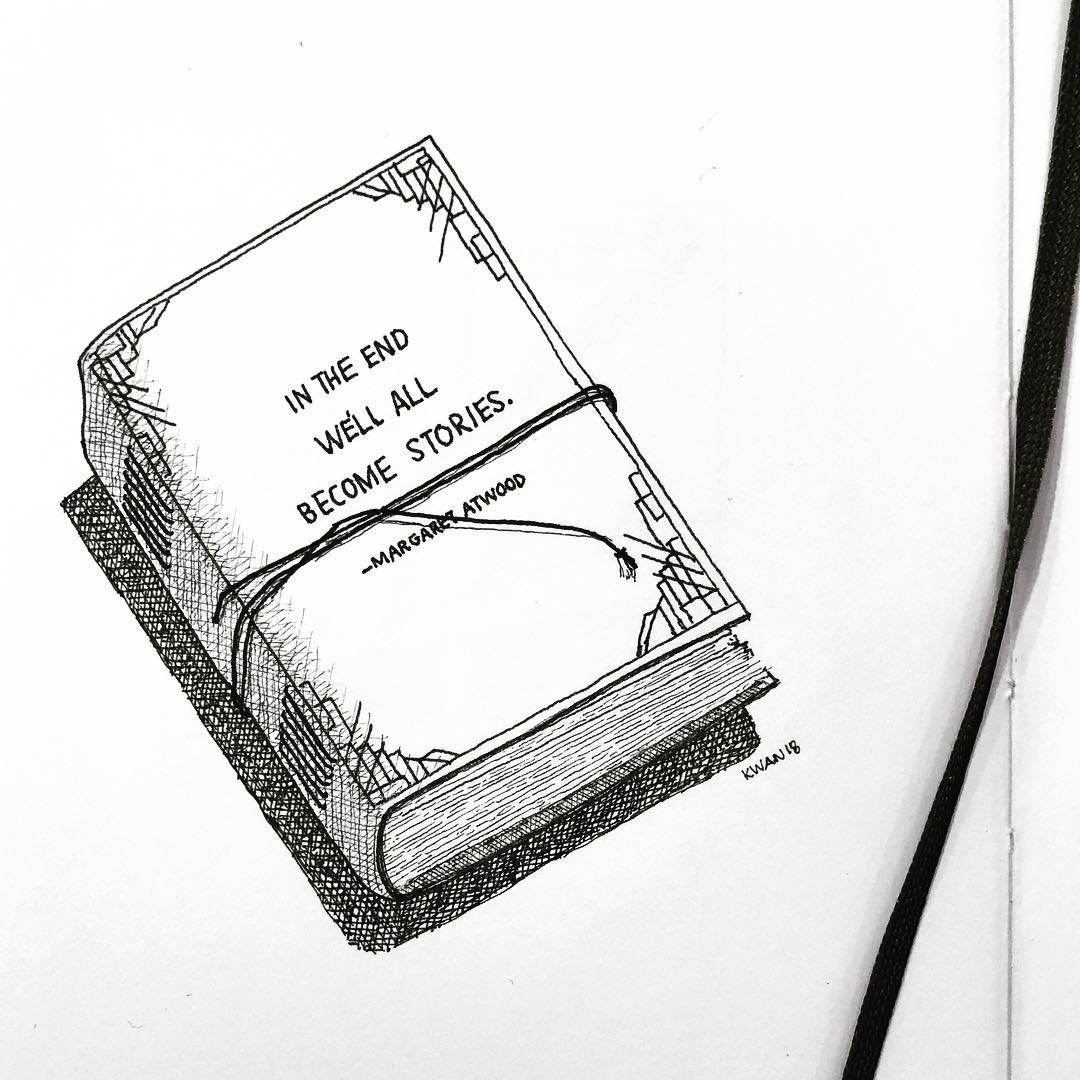 IN THE END
WE'LL ALL
BECOME STORIES.
-MARGARET ATWOOD
KWAN18